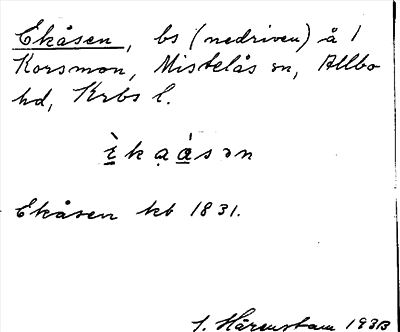 Ekåsen, bs (nedriven) å 1
Korsmon, Mistelås sn, Allbo
hd, Krbs l.
è̱ kạà̱sən
Ekåsen kb 1831.
Hårenstam 1933